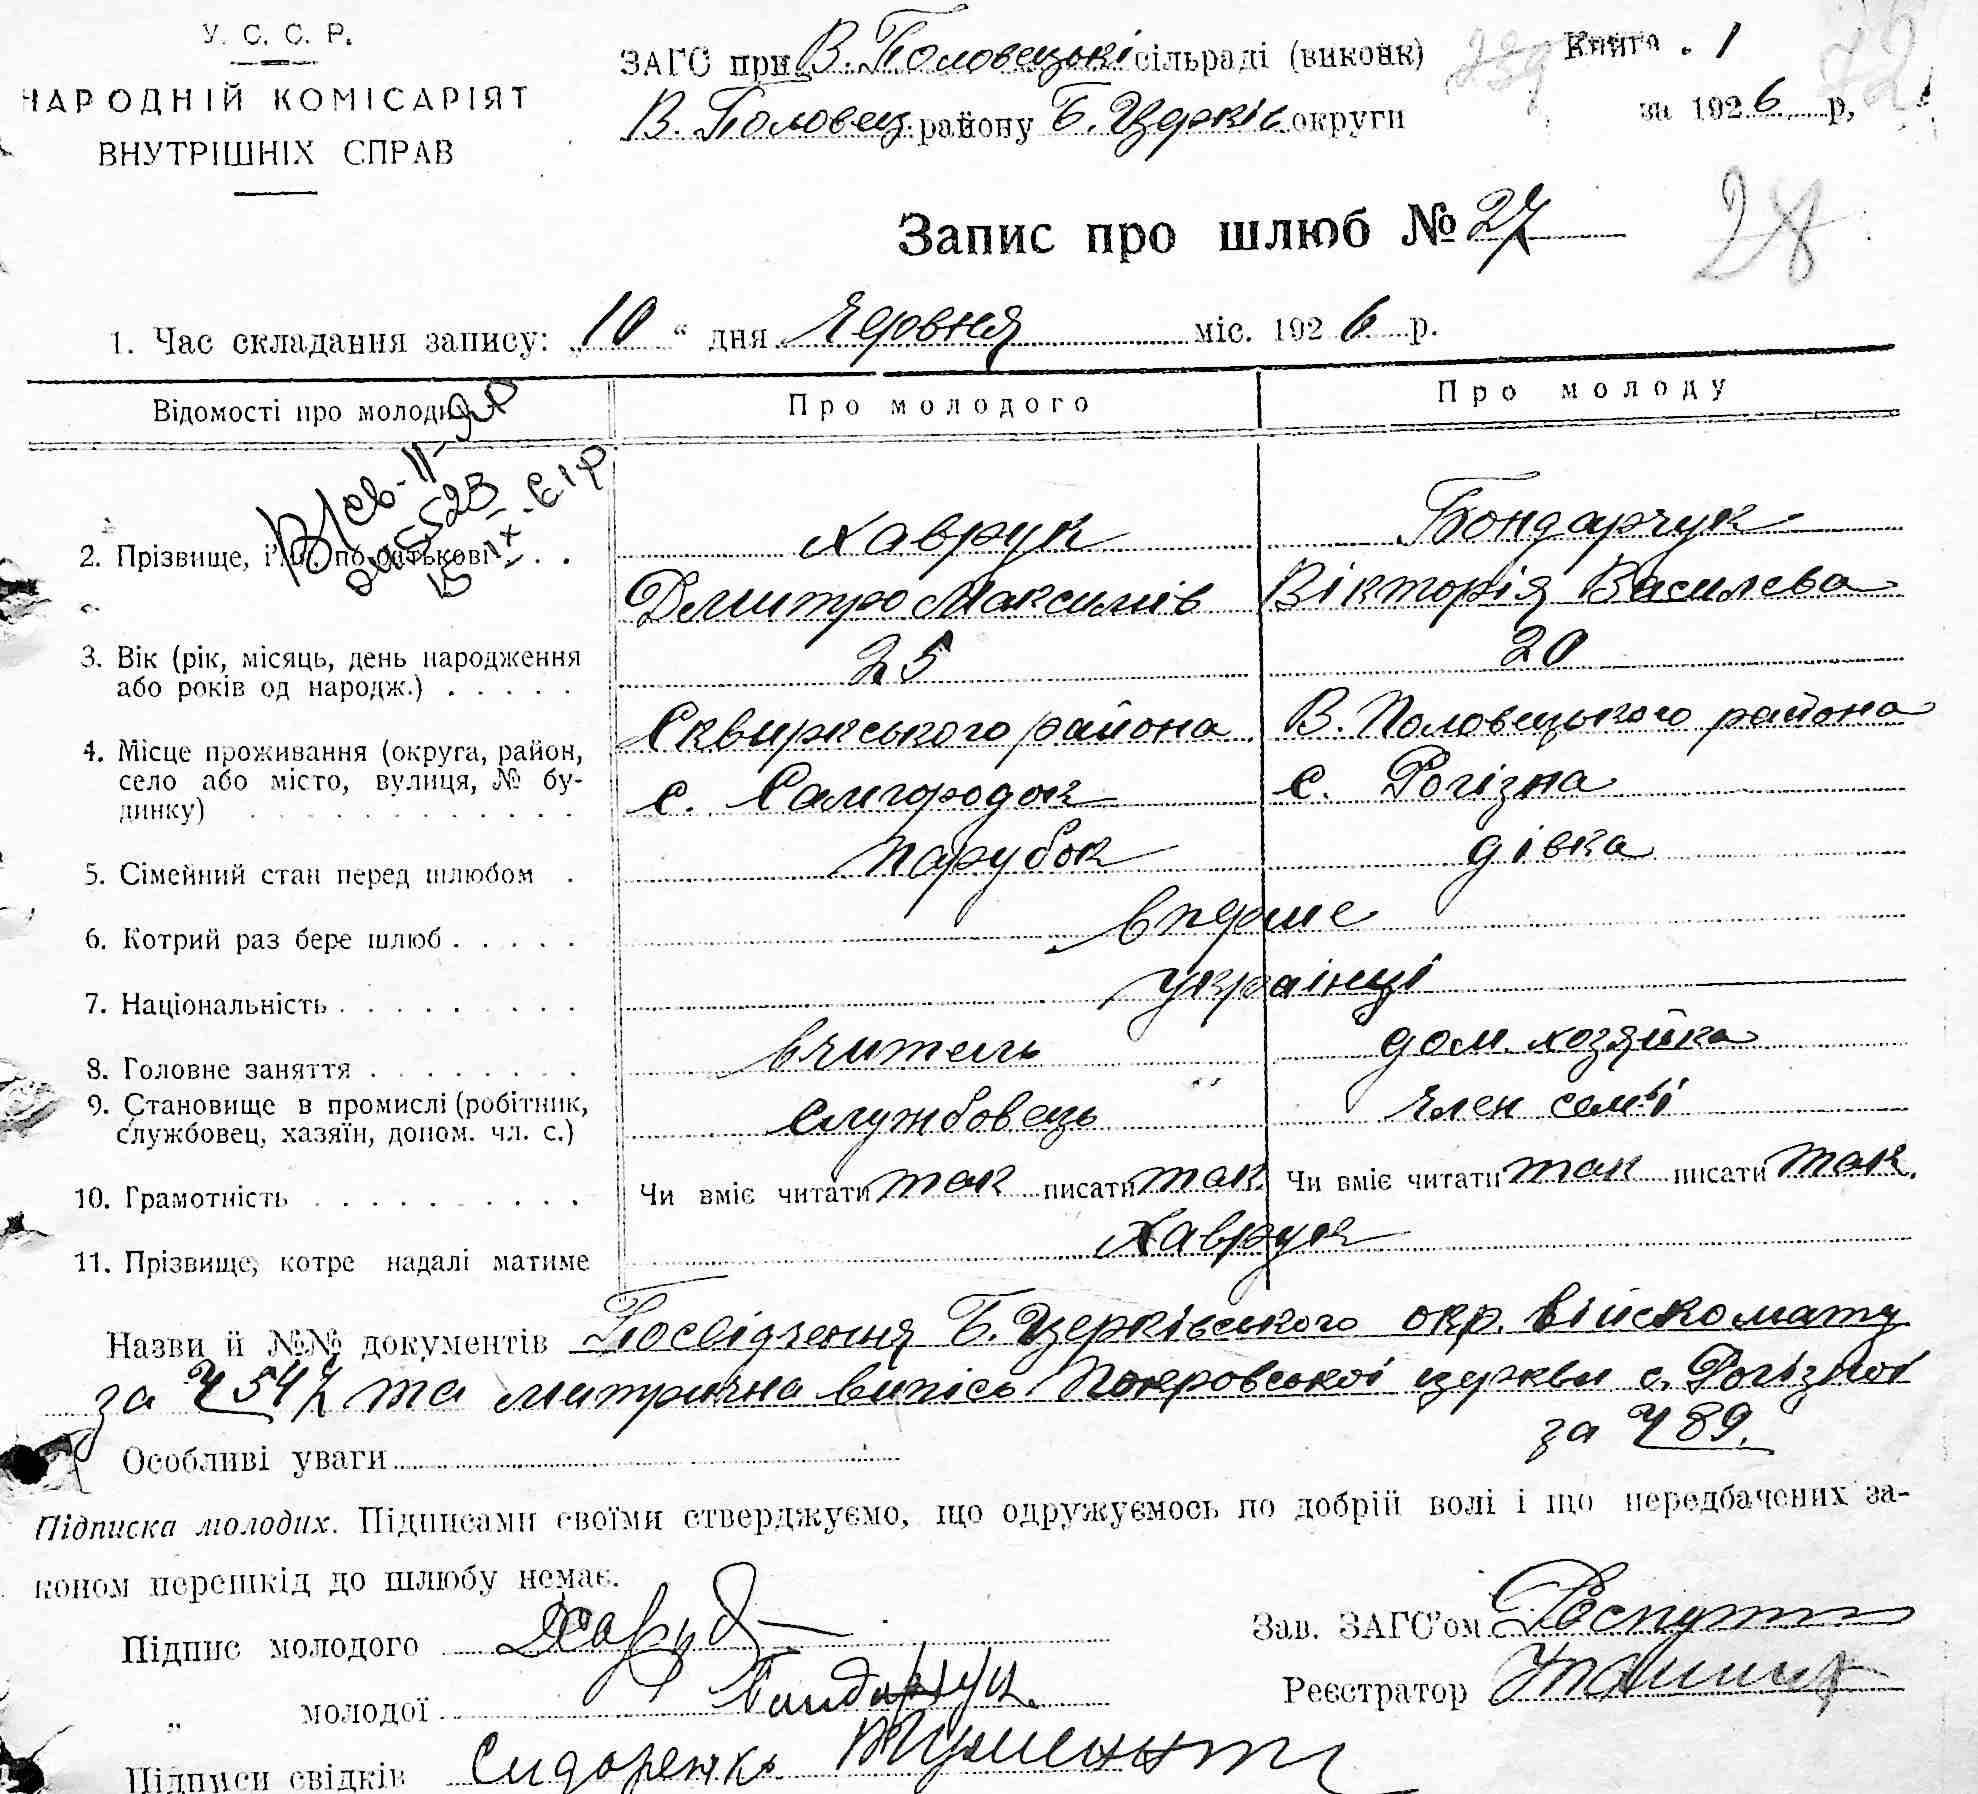 У. С. С. Р.
НАРОДНІЙ КОМІСАРІЯТ
ВНУТРІШНІХ СПРАВ
ЗАГС при В. Половецькі сільраді (виконк)
В. Половец. району Б. Церків округи
Книга . 1
за 1926 р,
Запис про шлюб № 27
28
1. Час складання запису: „10“ дня Червня міс. 1926 р.
Відомості про молодих
Про молодого
Про молоду
2. Прізвище, ім'я, по батькові . . .
Хаврук
Бондарчук
Дмитро Максимів
Вікторія Василева
3. Вік (рік, місяць, день народження
або років од народж.) . . . . .
25
20
4. Місце проживання (округа, район,
село або місто, вулиця, № бу-
динку) . . . . . . . . . . . .
Сквирського района
с. Самгородок
В. Половецького района
с. Рогізна
5. Сімейний стан перед шлюбом .
парубок
дівка
6. Котрий раз бере шлюб . . . . .
вперше
7. Національність . . . . . . . . .
українці
8. Головне заняття . . . . . . . .
вчитель
дом. хозяйка
9. Становище в промислі (робітник,
службовец, хазяїн, допом. чл. с.)
службовець
член семьї
10. Грамотність . . . . . . . . . .
Чи вміє читати так писати так.
Чи вміє читати так писати так.
11. Прізвище, котре надалі матиме
Хаврук
Назви й №№ документів Посвідчення Б. Церківського окр. військомату
за Ч 547 та митрична випісь Покровської церкви с. Рогізної
за Ч 89.
Особливі уваги
Підписка молодих. Підписами своїми стверджуємо, що одружуємось по добрій волі і що передбачених за-
коном перешкід до шлюбу немає.
Підпис молодого
Зав. ЗАГС'ом
„ молодої Бондарчук.
Реєстратор
Підписи свідків Сидоренко